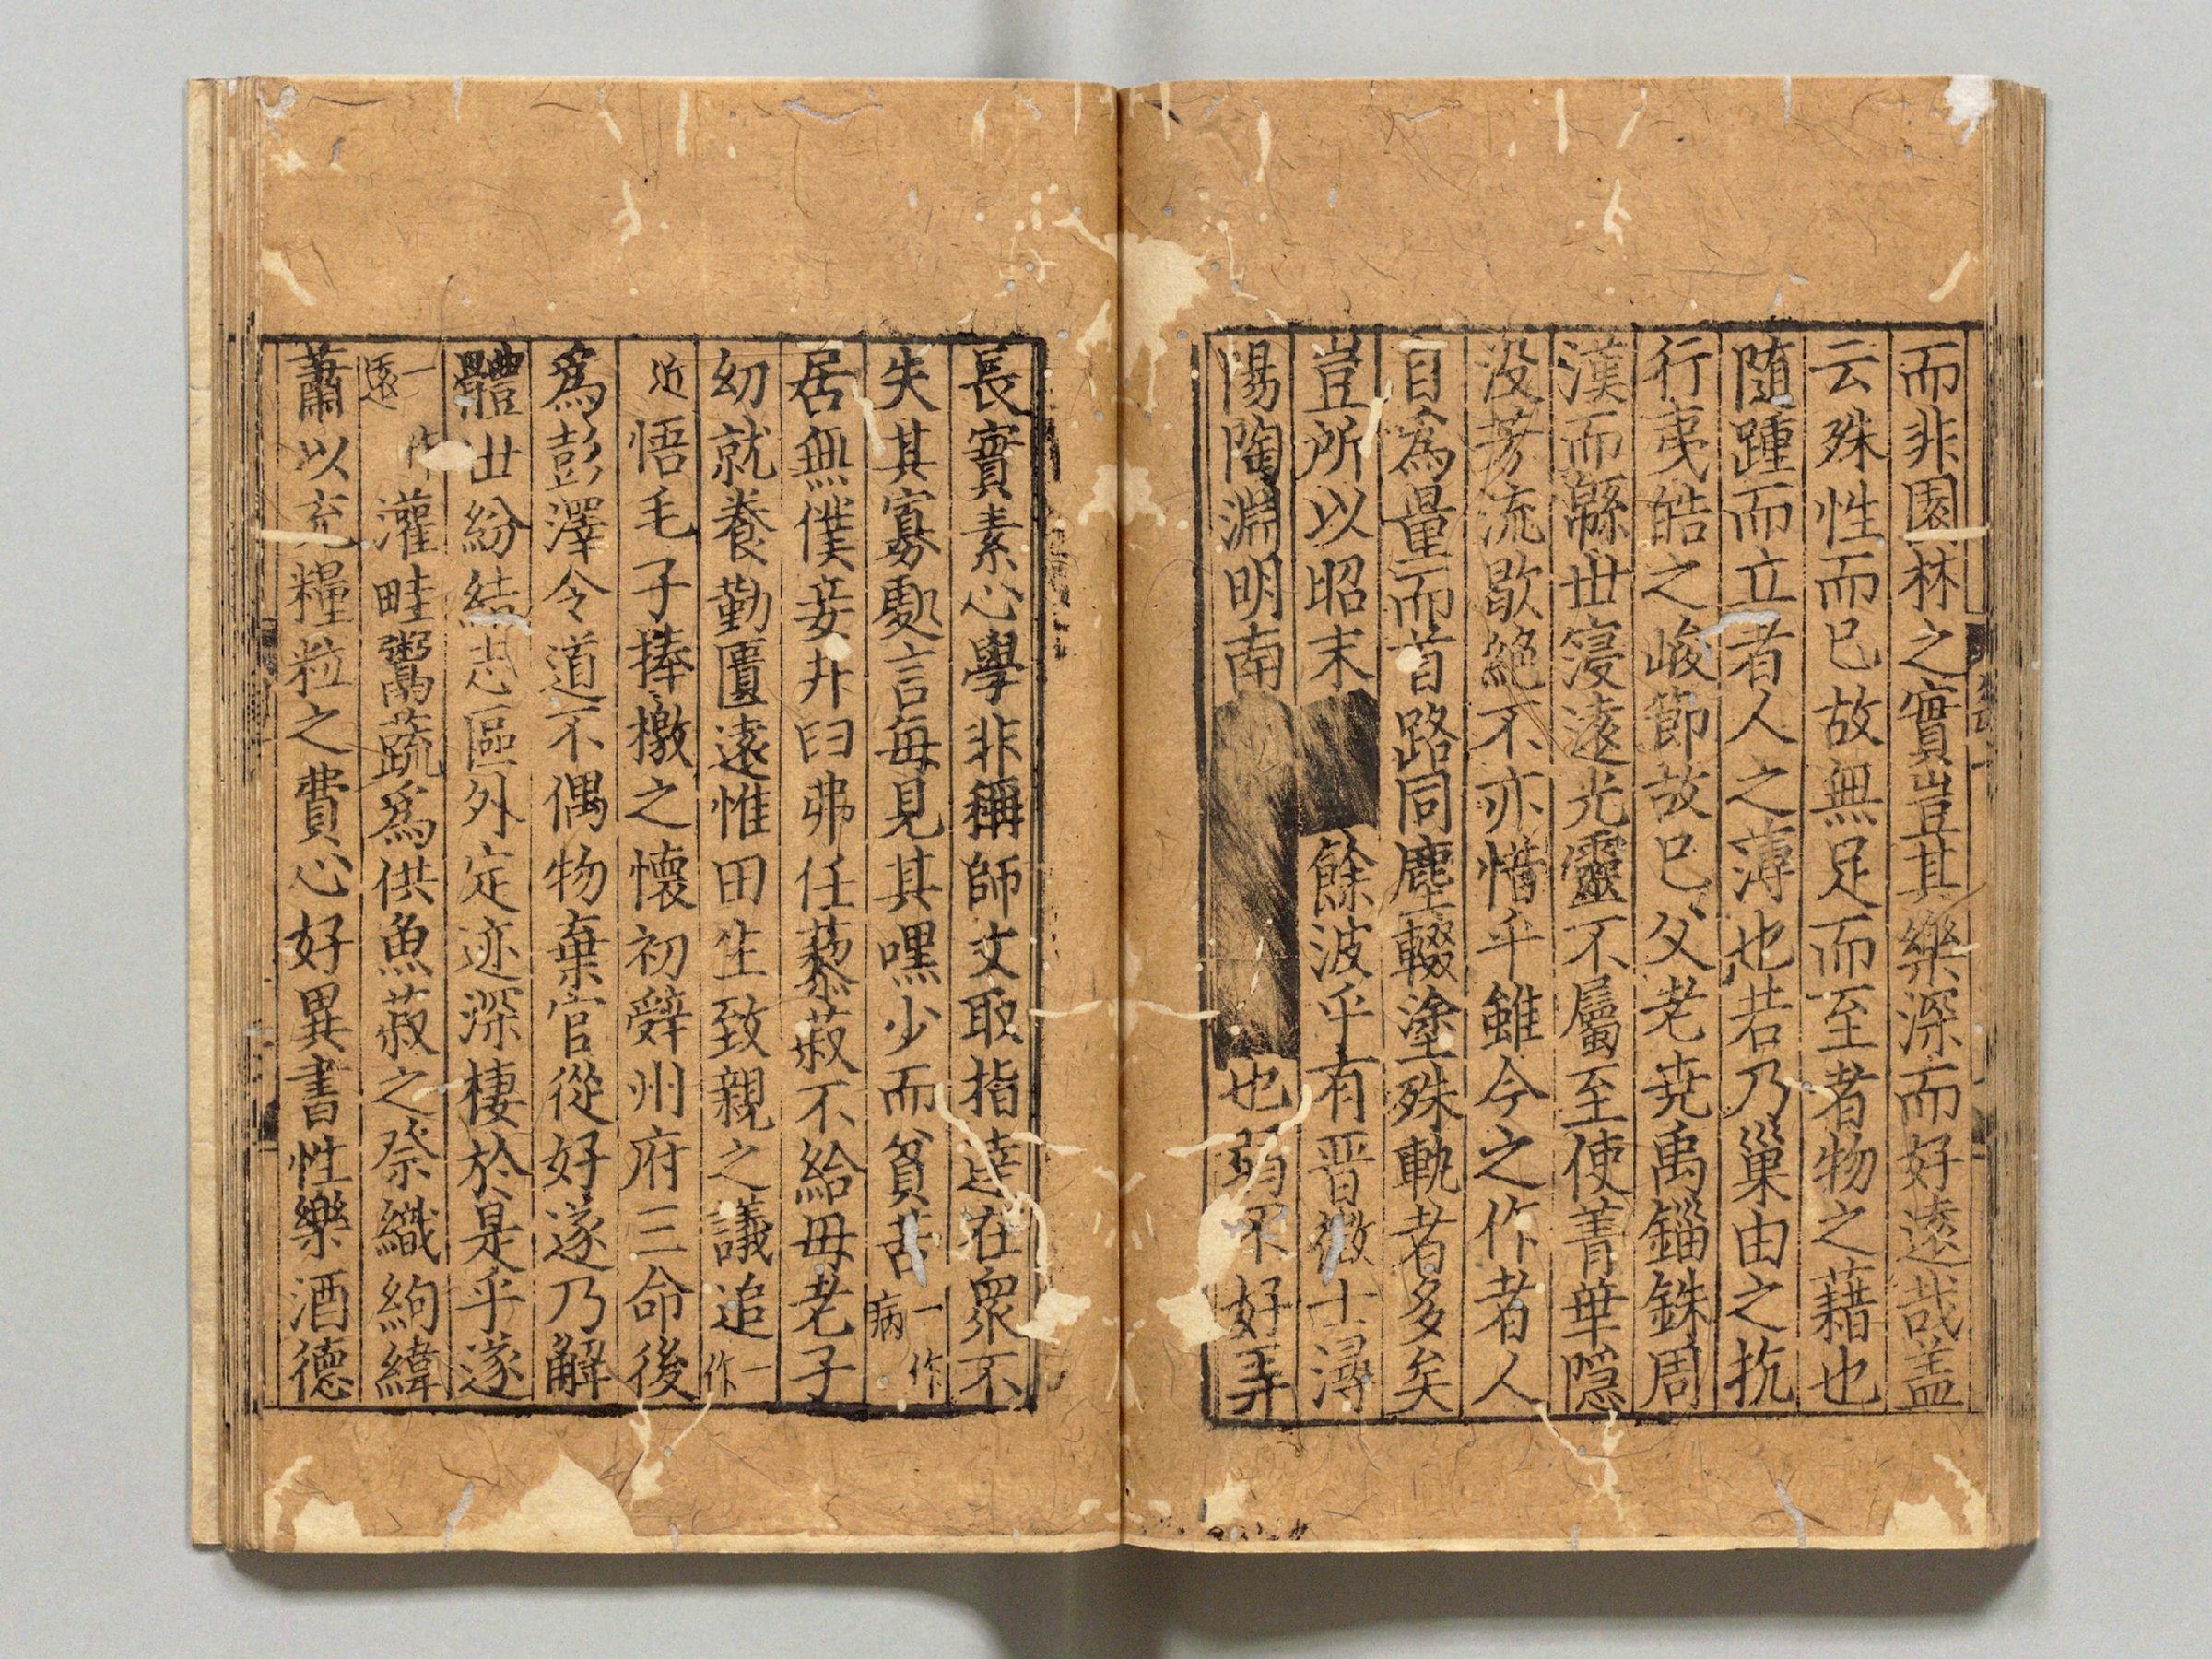 而非園林之實豈其樂深而好遠哉盖
云殊性而已故無足而至者物之藉也
隨踵而立者人之薄也若乃巢由之抗
行夷皓之峻節故已父老堯禹錙銖周
漢而緜世寖遠光靈不屬至使菁華隱
没芳流歇絶不亦惜乎雖今之作者人
自為量而首路同塵輟塗殊軌者多矣
豈所以昭末餘波乎有晋徵士潯
陽陶淵明南也弱不好弄
長實素心學非稱師文取指達在衆不
失其寡處言每見其嘿少而貧苦一作病
居無僕妾井臼弗任藜菽不給毋老子
幼就養勤匱遠惟田生致親之議追一作
近悟毛子捧檄之懷初辭州府三命後
為彭澤令道不偶物棄官從好遂乃解
體世紛結志區外定迹深棲於是乎遂
一作遠灌畦鬻蔬為供魚菽之祭織絇緯
蕭以充糧粒之費心好異書性樂酒德